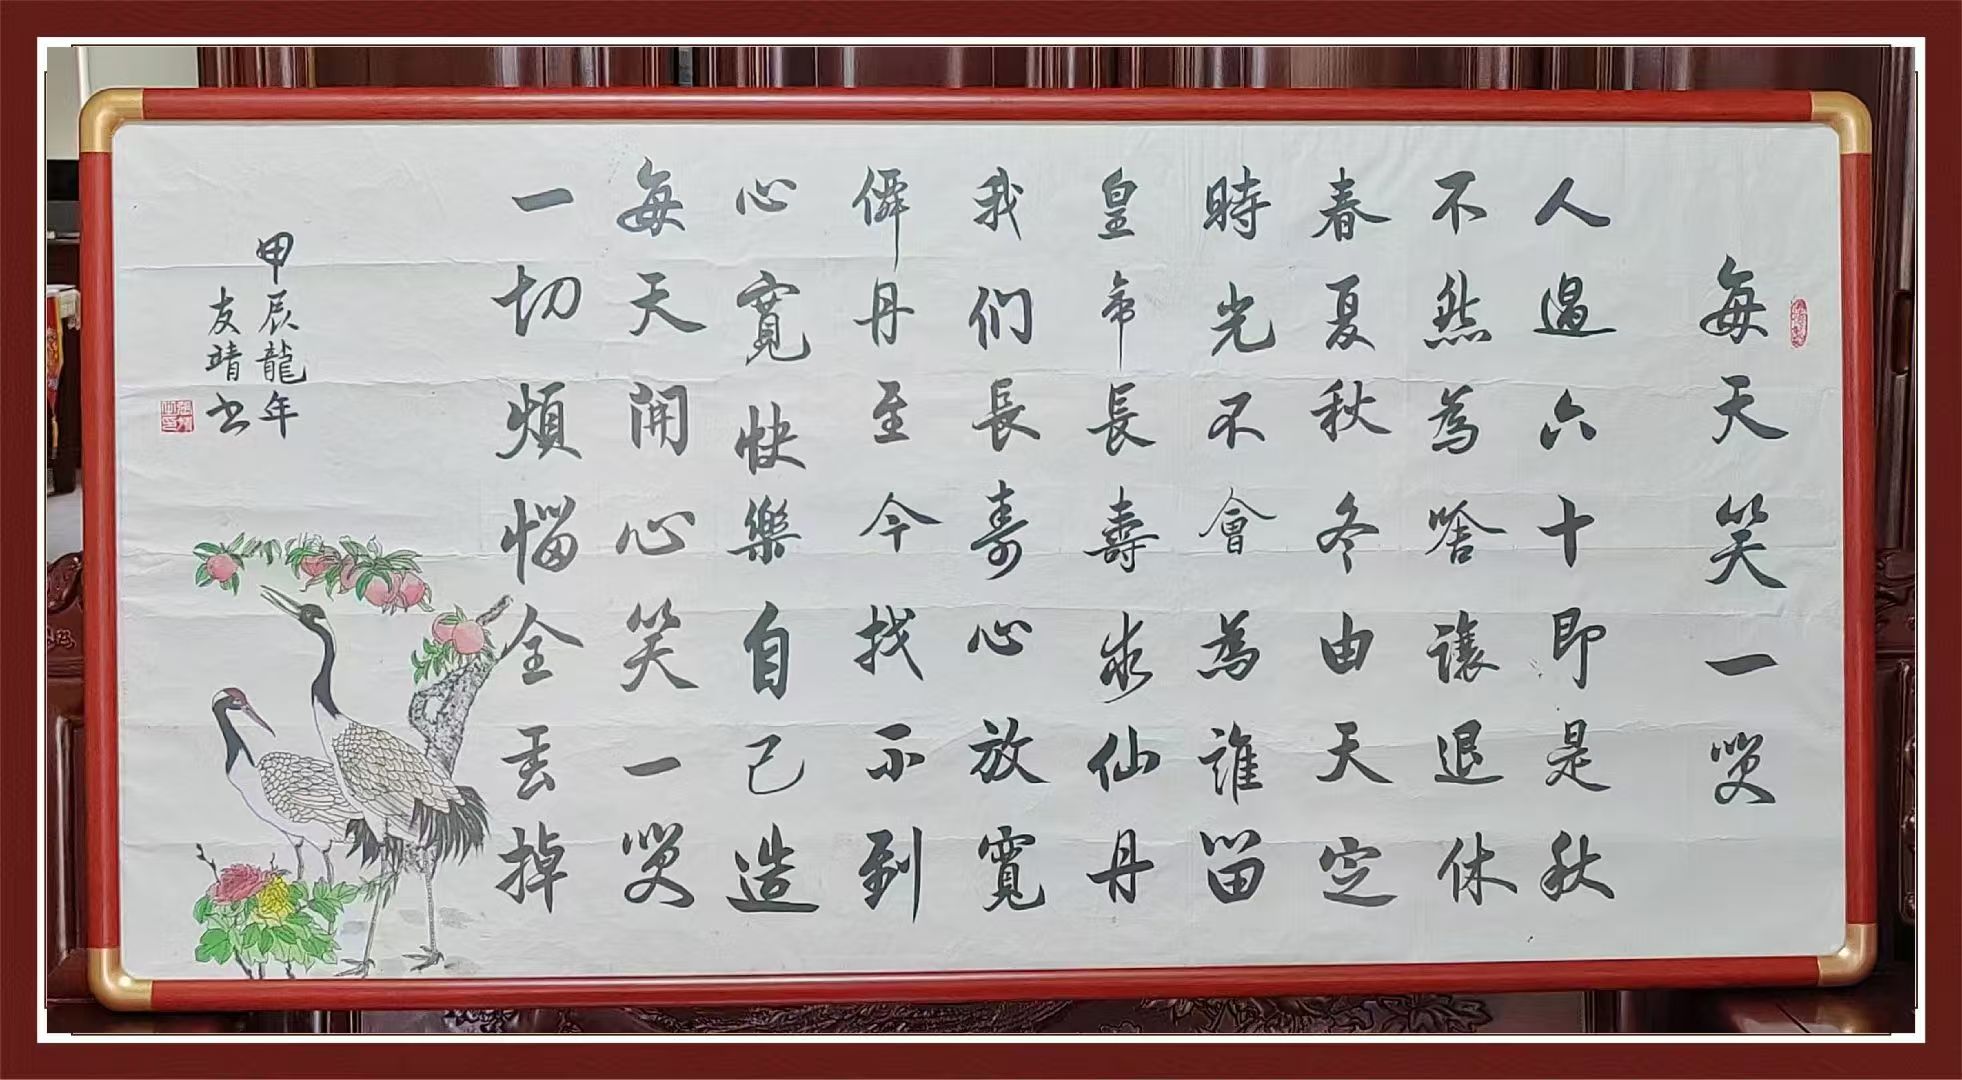 每天笑一笑
人過六十即是秋
不然為啥讓退休
春夏秋冬由天定
時光不會為誰留
皇帝長壽求仙丹
我们長寿心放寬
僊丹至今找不到
心寬快樂自己造
每天開心笑一笑
一切煩惱全丟掉
甲辰龍年
友靖书